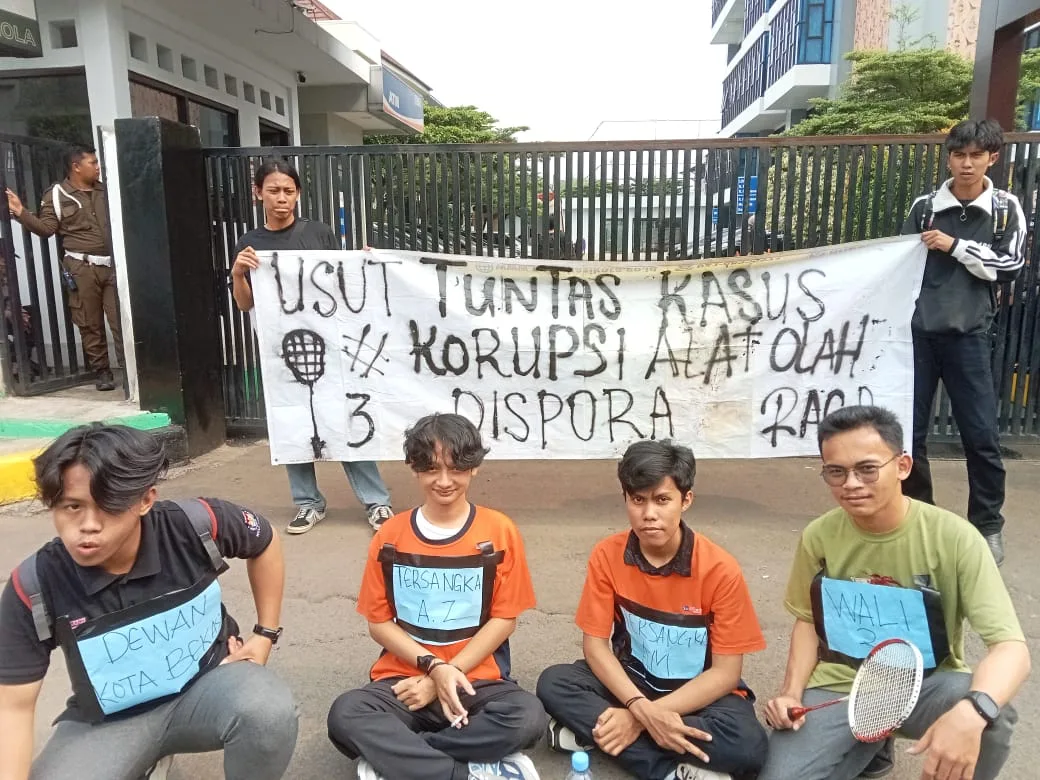 OLA
ATM
USUT TUNTAS KASUS
KORUPSI ALAT OLAH
3 DISPORA RAGA
DEWAN
KOTA BEKASI
TERSANGKA
A.Z
TERSANGKA
WALI